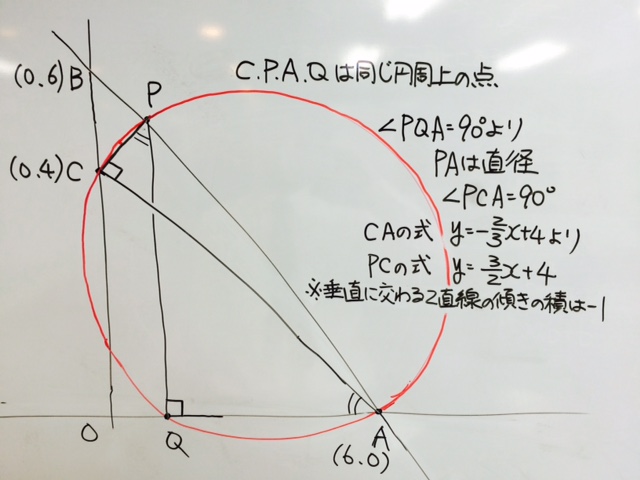 C.P.A.Qは同じ円周上の点
(0.6)B
P
∠PQA=90°より
PAは直径
(0.4)C
∠PCA=90°
CAの式 y=-2/3x+4より
PCの式 y=3/2x+4
※垂直に交わる2直線の傾きの積は-1
O
Q
A
(6.0)